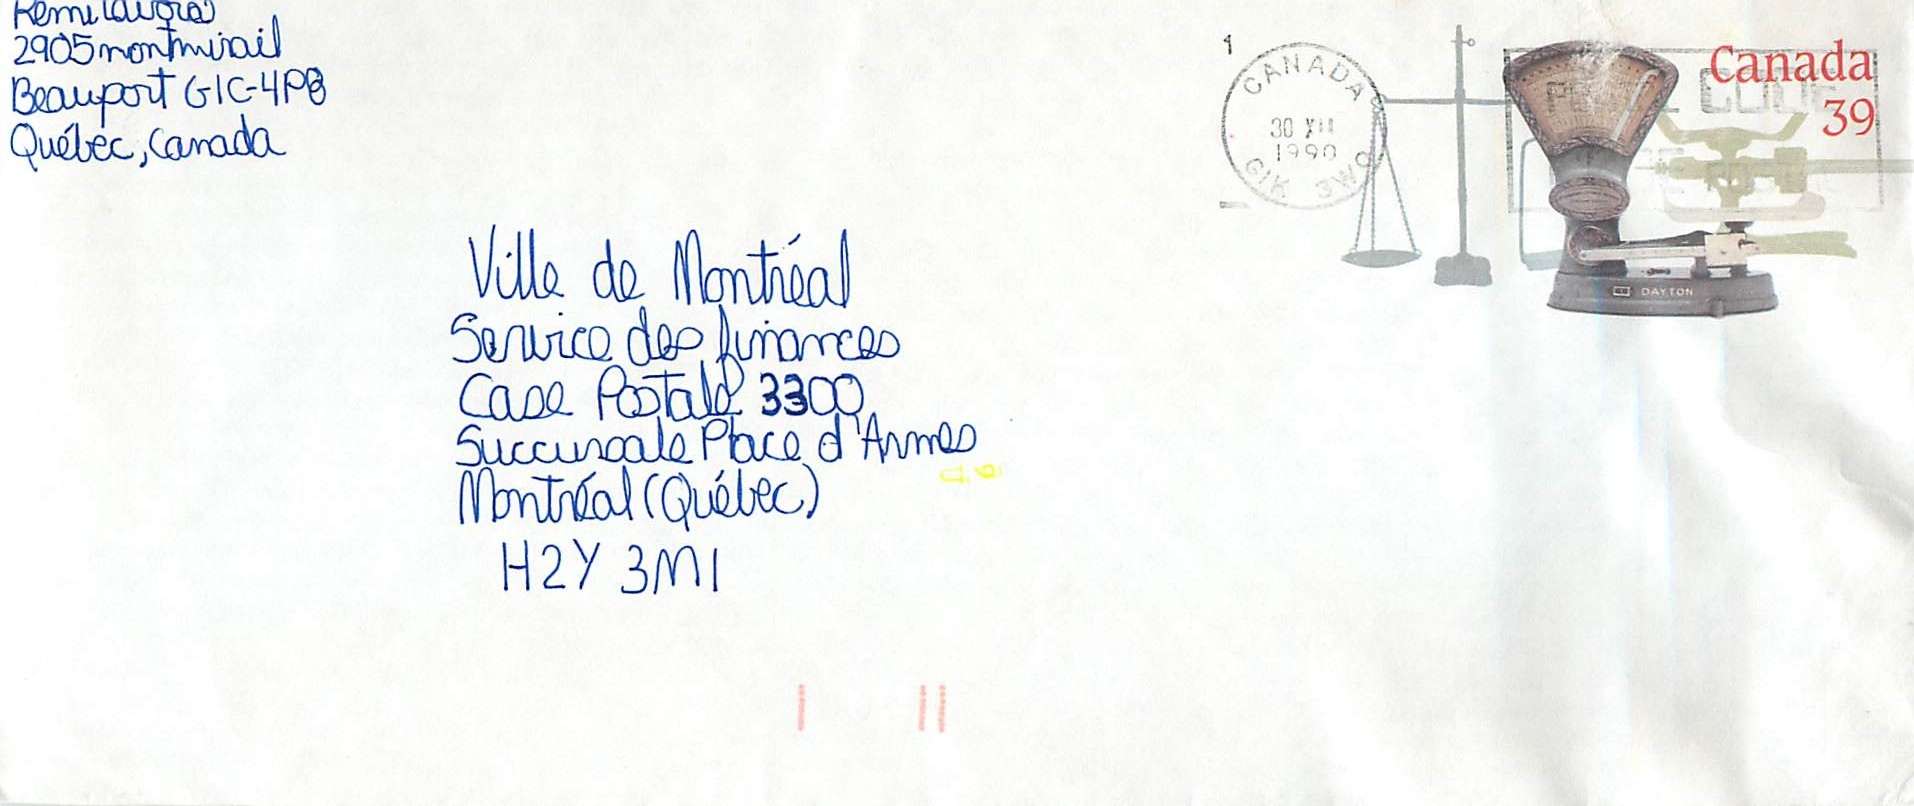 Remi
2905 montmirail
Beauport G1C-4P8
Québec, Canada
1
CANADA
30 XII
1990
G1K 3W0
Canada
39
POSTAL CODE
DAYTON
Ville de Montréal
Service des finances
Case Postale 3300
Succursale Place d'Armes
Montréal (Québec)
H2Y 3M1